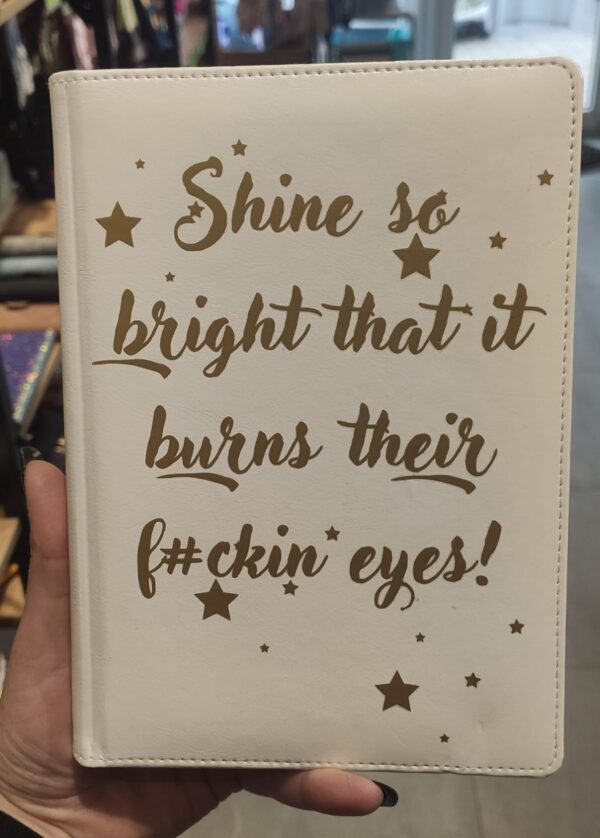 Shine so
bright that it
burns their
f#ckin' eyes!